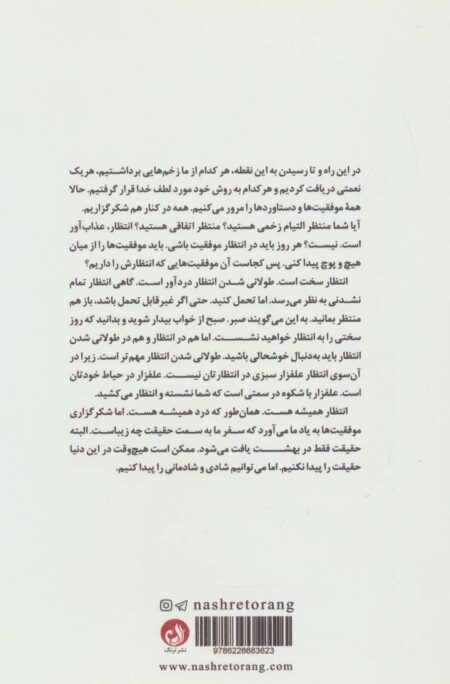 در این راه و تا رسیدن به این نقطه، هر کدام از ما زخم‌هایی برداشتیم، هر یک
نعمتی دریافت کردیم و هر کدام به روش خود مورد لطف خدا قرار گرفتیم. حالا
همهٔ موفقیت‌ها و دستاوردها را مرور می‌کنیم. همه در کنار هم شکرگزاریم.
آیا شما منتظر التیام زخمی هستید؟ منتظر اتفاقی هستید؟ انتظار، عذاب‌آور
است. نیست؟ هر روز باید در انتظار موفقیت باشی. باید موفقیت‌ها را از میان
هیچ و پوچ پیدا کنی. پس کجاست آن موفقیت‌هایی که انتظارش را داریم؟
انتظار سخت است. طولانی شدن انتظار دردآور است. گاهی انتظار تمام
نشدنی به نظر می‌رسد. اما تحمل کنید. حتی اگر غیرقابل تحمل باشد، باز هم
منتظر بمانید. به این می‌گویند صبر. صبح از خواب بیدار شوید و بدانید که روز
سختی را به انتظار خواهید نشست. اما هم در انتظار و هم در طولانی شدن
انتظار باید به‌دنبال خوشحالی باشید. طولانی شدن انتظار مهم‌تر است. زیرا در
آن‌سوی انتظار علفزار سبزی در انتظارتان نیست. علفزار در حیاط خودتان
است. علفزار با شکوه در سمتی است که شما نشسته و انتظار می‌کشید.
انتظار همیشه هست. همان‌طور که درد همیشه هست. اما شکرگزاری
موفقیت‌ها به یاد ما می‌آورد که سفر ما به سمت حقیقت چه زیباست. البته
حقیقت فقط در بهشت یافت می‌شود. ممکن است هیچ‌وقت در این دنیا
حقیقت را پیدا نکنیم. اما می‌توانیم شادی و شادمانی را پیدا کنیم.
nashretorang
نشر ترنگ
9786226683623
www.nashretorang.com